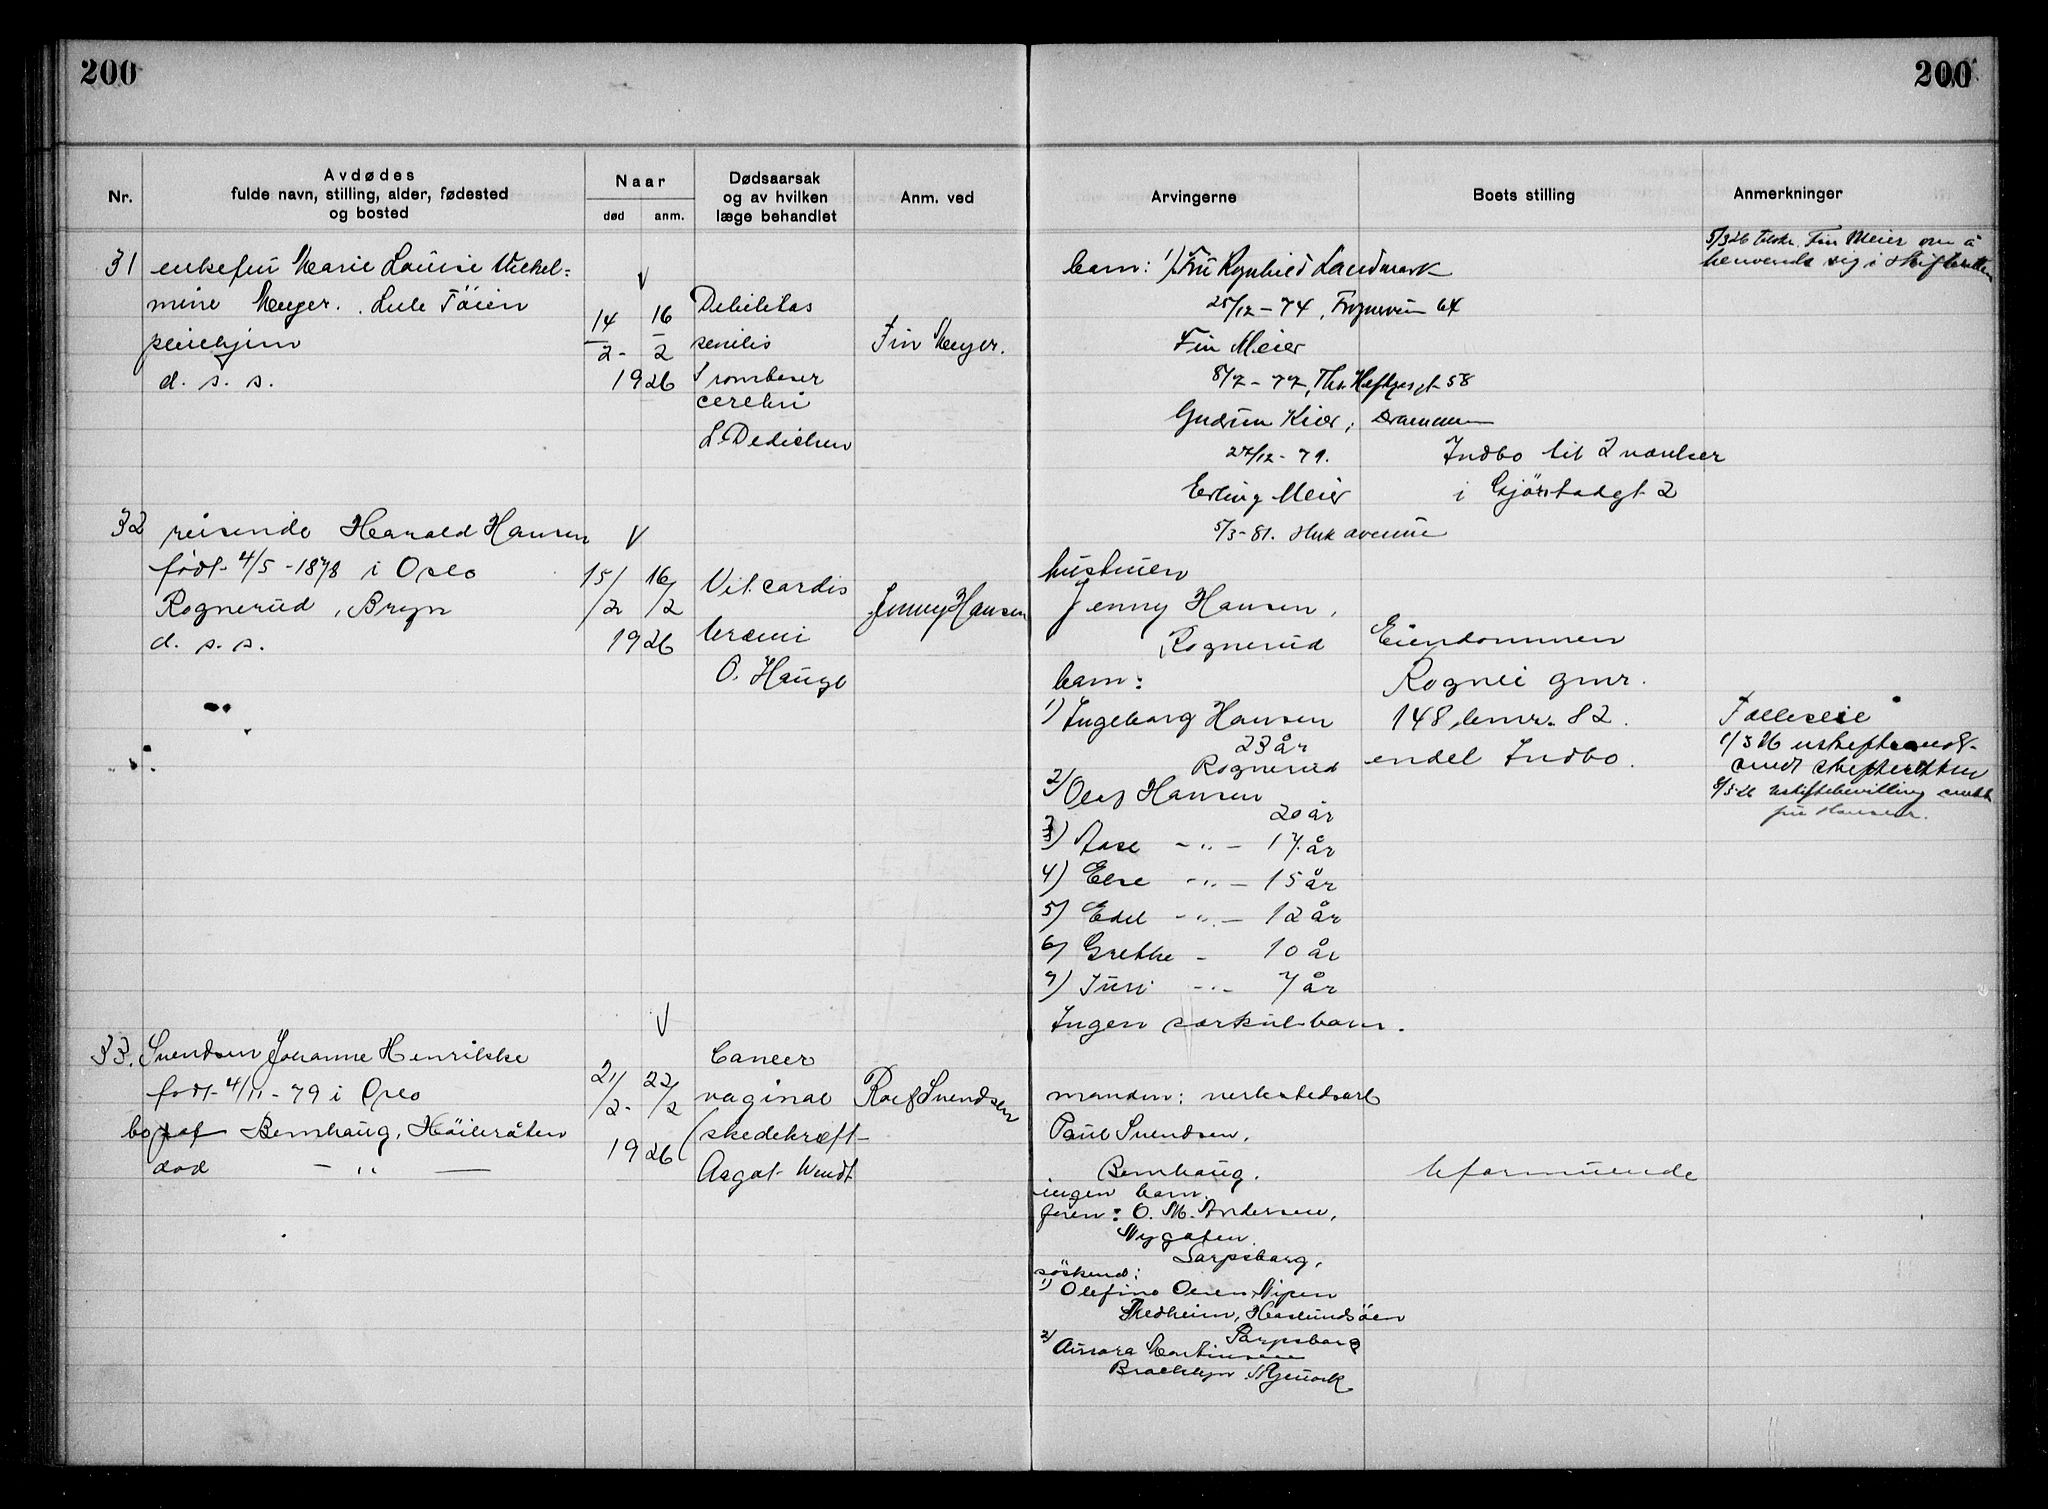 200
200
Nr.
Avdødes
fulde navn, stilling, alder, fødested
og bosted
Naar
død
anm.
Dødsaarsak
og av hvilken
læge behandlet
Anm. ved
Arvingerne
Boets stilling
Anmerkninger
31
enkefru Marie Louise Vilhel-
mine Meyer. Lille Töien
pleiehjem
d. s. s.
14/2- 16/2
1926
Debilitas
senilis
Tromboser
cerebri
L. Dedichen
Fin Meyer.
barn: 1) Fru Ragnhild Landmark
25/12-74, Frognervn 64
Fin Meier
8/7-77, Th. Heftyesgt 58
Gudrun Kiær, Drammen
27/12-79.
Erling Meier
5/3-81. Huk avenue
Indbo til 2 værelser
i Gjörstadgt 2
5/3 26 tilskr. Fin Meier om å
henvende sig i skifteretten
32
reisende Harald Hansen
født 4/5-1878 i Oslo
Rognerud, Bryn
d. s. s.
15/2 16/2
1926
Vit. cordis
Uræmi
O. Hauge
Jenny Hansen
hustruen
Jenny Hansen,
Rognerud
barn:
1) Ingeborg Hansen
23 år
Rognerud
2) Olaf Hansen
20 år
3) Aase -"- 17 år
4) Else -"- 15 år
5) Edel -"- 12 år
6) Grethe - 10 år
7) Turi -"- 7 år
Ingen særkulsbarn.
Eiendommen
Rognli gnr.
148, bnr. 82.
endel Indbo.
Fælleseie
1/3 26
8/3 26 uskiftebevilling
fru Hansen.
33.
Svendsen Johanne Henrikke
født 4/11-79 i Oslo
bopæl Bernhaug, Höibråten
død -"-
21/2- 22/2
1926
Cancer
vaginae
(skedekræft
Aagot Wendt
Rolf Svendsen
manden: verkstedsarb
Paul Svendsen,
Bernhaug.
ingen barn.
foren: O. M. Andersen,
Nygaten
Sarpsborg,
söskend:
1) Olefine Olsen Nipen
Haslundsöen
Sarpsborg
2) Aurora Martinsen
Brooklyn Njuork
Uformuende